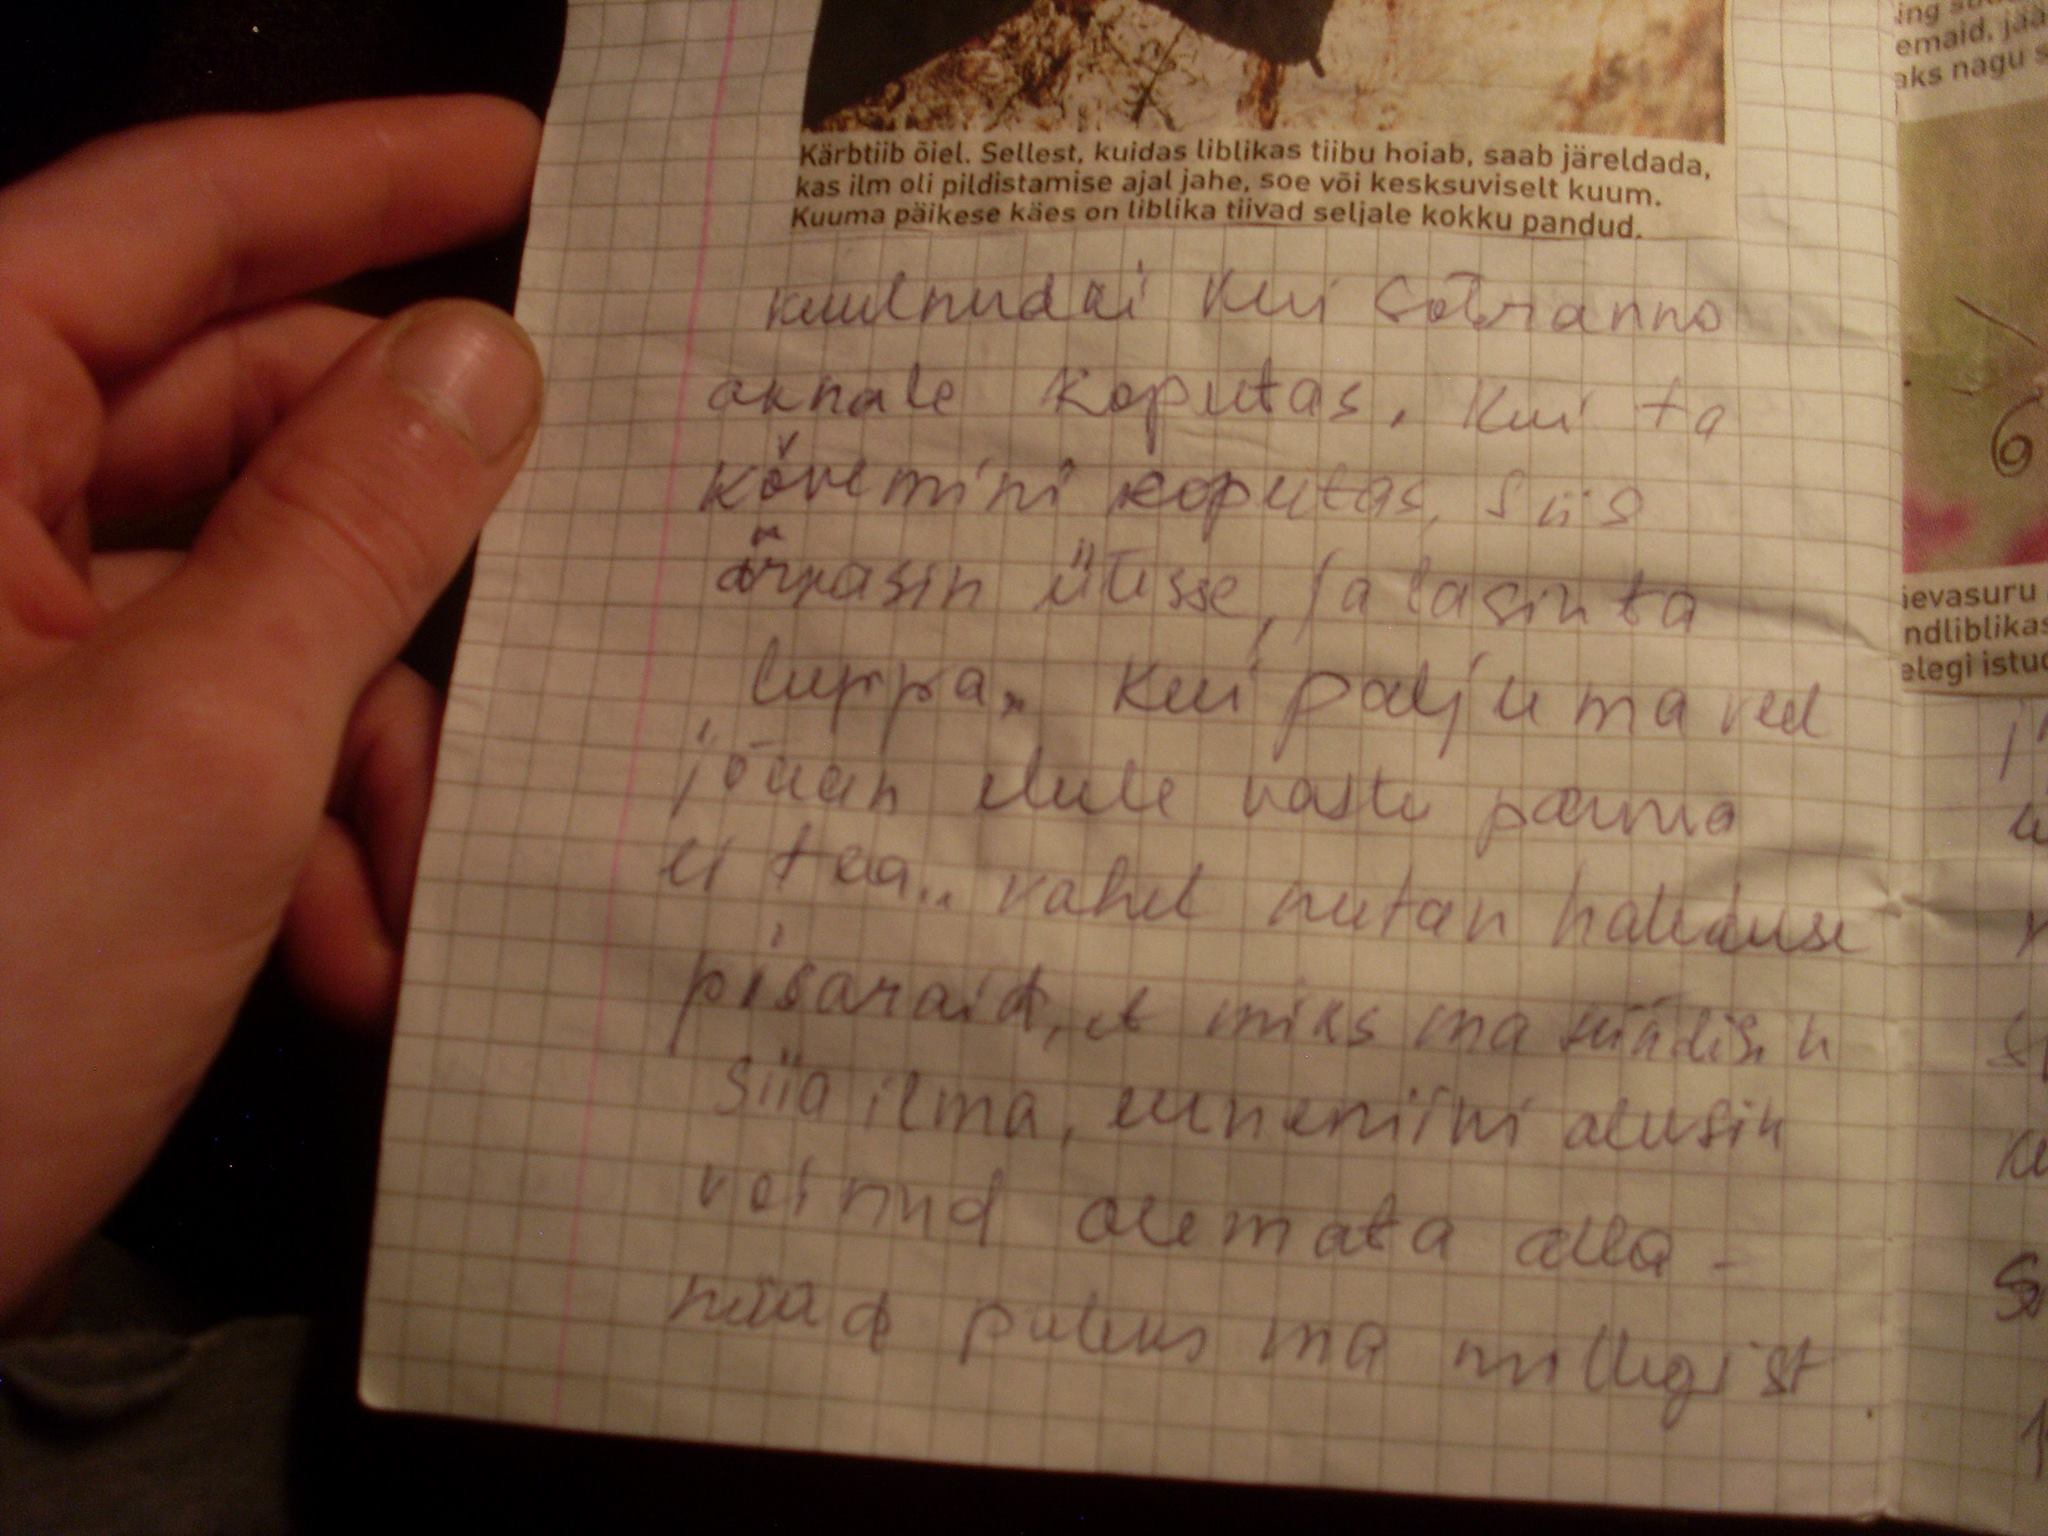 Kärbtiib õiel. Sellest, kuidas liblikas tiibu hoiab, saab järeldada,
kas ilm oli pildistamise ajal jahe, soe või kesksuviselt kuum.
Kuuma päikese käes on liblika tiivad seljale kokku pandud.
kuulnudki kui sõbranna
aknale koputas. Kui ta
kõvemini koputas, siis
ärkasin ülesse, ja lasin ta
tuppa. Kui palju ma veel
jõuan elule vastu panna
ei tea.. vahel nutan haleduse
pisaraid, et miks ma sündisin
siia ilma, ennemini oleksin
võinud olemata olla -
nüüd pulens ma millegist
ing
emaid, jää
aks nagu s
6
äevasuru
ndliblikas
elegi istu